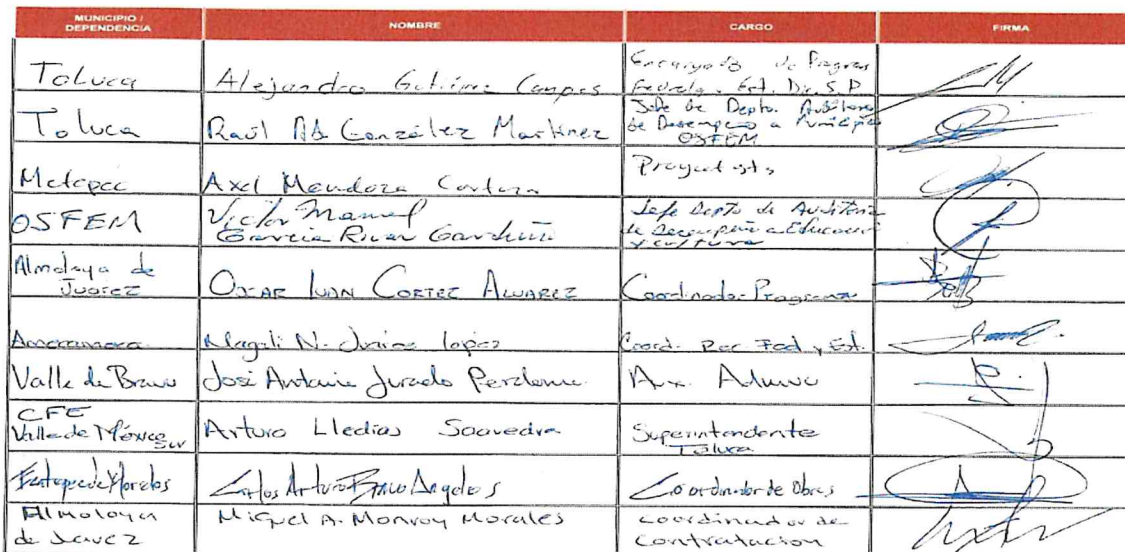 MUNICIPIO / DEPENDENCIA NOMBRE CARGO FIRMA
Toluca Alejandro Gutiérrez Campos Encargado de Program Federal y Est. Dir. S.P
Toluca Raúl Ad. González Martínez Jefe de Depto. Auditoria de Desempeño a Municipios OSFEM
Metepec Axel Mendoza Proyectista
OSFEM Victor Manuel Garcia Rivas Garduño Jefe Depto de Auditoria de Desempeño a Educación y cultura
Almoloya de Juarez Oscar Ivan Cortez Alvarez Coordinador Programas
Amecameca Magali N. Juárez López Coord. Rec Fed y Est.
Valle de Bravo José Antonio Jurado Perdomo Aux. Admvo
CFE Valle de México Sur Arturo Lledias Saavedra Superintendente Toluca
Ecatepec de Morelos Carlos Arturo Bravo Angeles Coordinador de Obras
Almoloya de Juarez Miguel A. Monroy Morales coordinador de contratacion